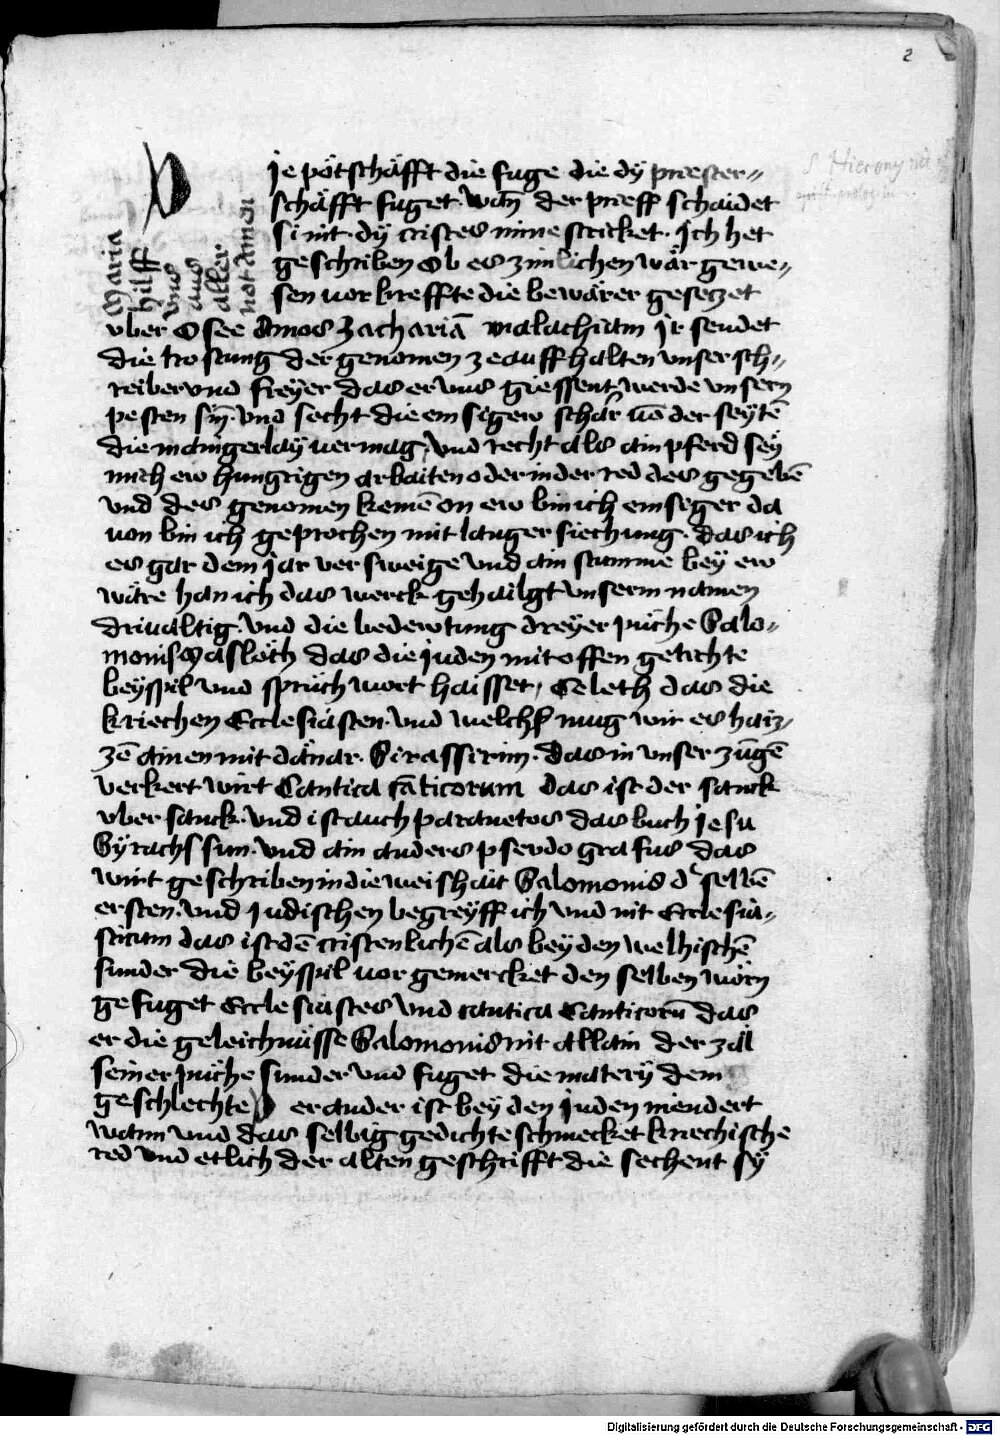 2
S. Hierony
Die pötschäfft die fuge die dÿ priester⸗
schäfft fuget · wan̄ der prieff schaidet
si nit · dÿ cristes minne stricket · Ich het
geschriben Ob es zimlichen wär gewe⸗
sen vor kreffte die bewärer gesetzet
Maria
hilff
vns
aus
aller
not Amen
vber Osee Amos Zachariā malachiam Ir sendet
die trostung der genomen ze auff halten vnser sch⸗
reiber vnd freÿer das er vns giessent werde vnsern
pesten sin̄ · vnd secht die emsigew schär vō der seÿtē
die maingerlaÿ vermag, vnd recht als ain pferd seÿ
mich ew hungrigen arbaiten oder in der red des gegebē
vnd des genomen kemē on ew bin ich emsiger da
uon bin ich geprochen mit langer siechung · das ich
es gar dem Jar versweige vnd ain stumme beÿ ew
wäre han ich das werck gehailgt vnserm namen
driualtig · vnd die bedewtung dreÿer püche Salo⸗
monis Masloth das die Juden mit offen getichte
beÿspil vnd sprüchwort haisset, Celeth das die
kriechen Ecclesiasten · vnd welchs mug wir es haiz⸗
zē ainen mit dänar · Sirassirim · das in vnser zūgē
verkert wirt Cantica cāticorum das ist der sanck
vber sanck · vnd ist auch paranetos das buch Jesu
Sÿrachs sun · vnd ain anders pseudografus das
wirt geschriben in die weishait Salomonis d' selbē
ersten · vnd Judischen begreÿff ich vnd nit Ecclesia⸗
sticum das ist dē cristenlichē als beÿ den welhischē
sunder die beÿspil vor gemercket den selben worn
gefuget Ecclesiastes vnd cantica Canticorū das
er die geleichnüsse Salomonis nit allain der zäl
seiner püche sunder vnd fuget die materÿ dem
geschlechte D er ander ist beÿ den Juden niendert
wann vnd das selbig gedichte schmecket kriechische
red vnd etlich der alten geschrifft die sechent sÿ
Digitalisierung gefördert durch die Deutsche Forschungsgemeinschaft - DFG